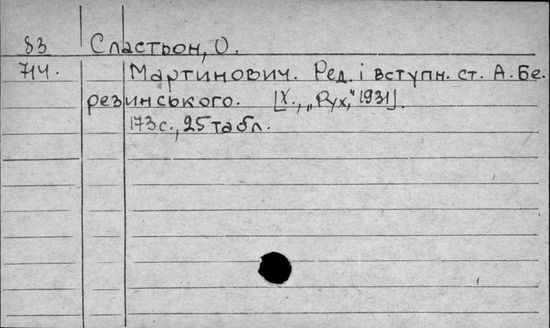 83 Сластьон, О.
714. Мартинович. Ред. і вступн. ст. А. Бе-
резинського. [Х., „Рух," 1931].
173 с., 25 табл.